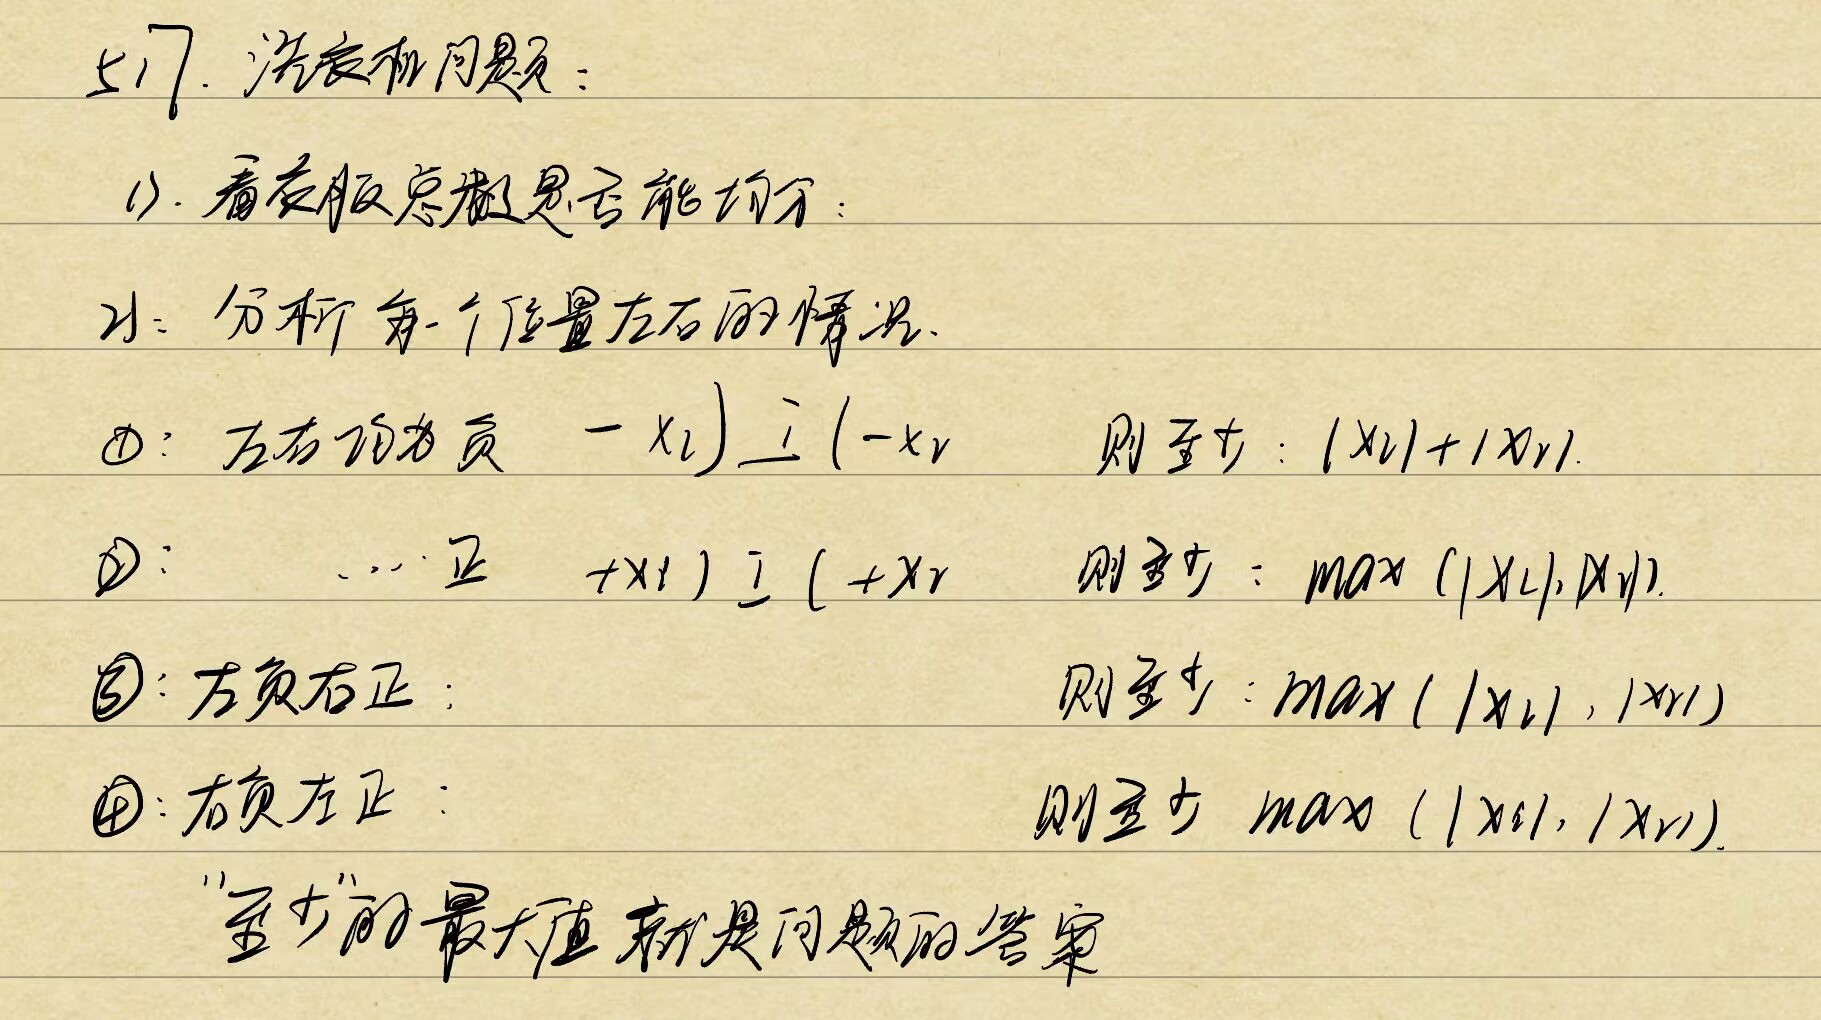 517. 洗衣机问题:
1). 看衣服总数是否能均分:
2): 分析每一个位置左右的情况.
①: 左右均为负 -xl) i (-xr 则至少: |xl|+|xr|.
②: ...正 +xl) i (+xr 则至少: max (|xl|,|xr|).
③: 左负右正: 则至少: max(|xl|, |xr|)
④: 右负左正: 则至少 max (|xl|, |xr|).
"至少"的最大值就是问题的答案